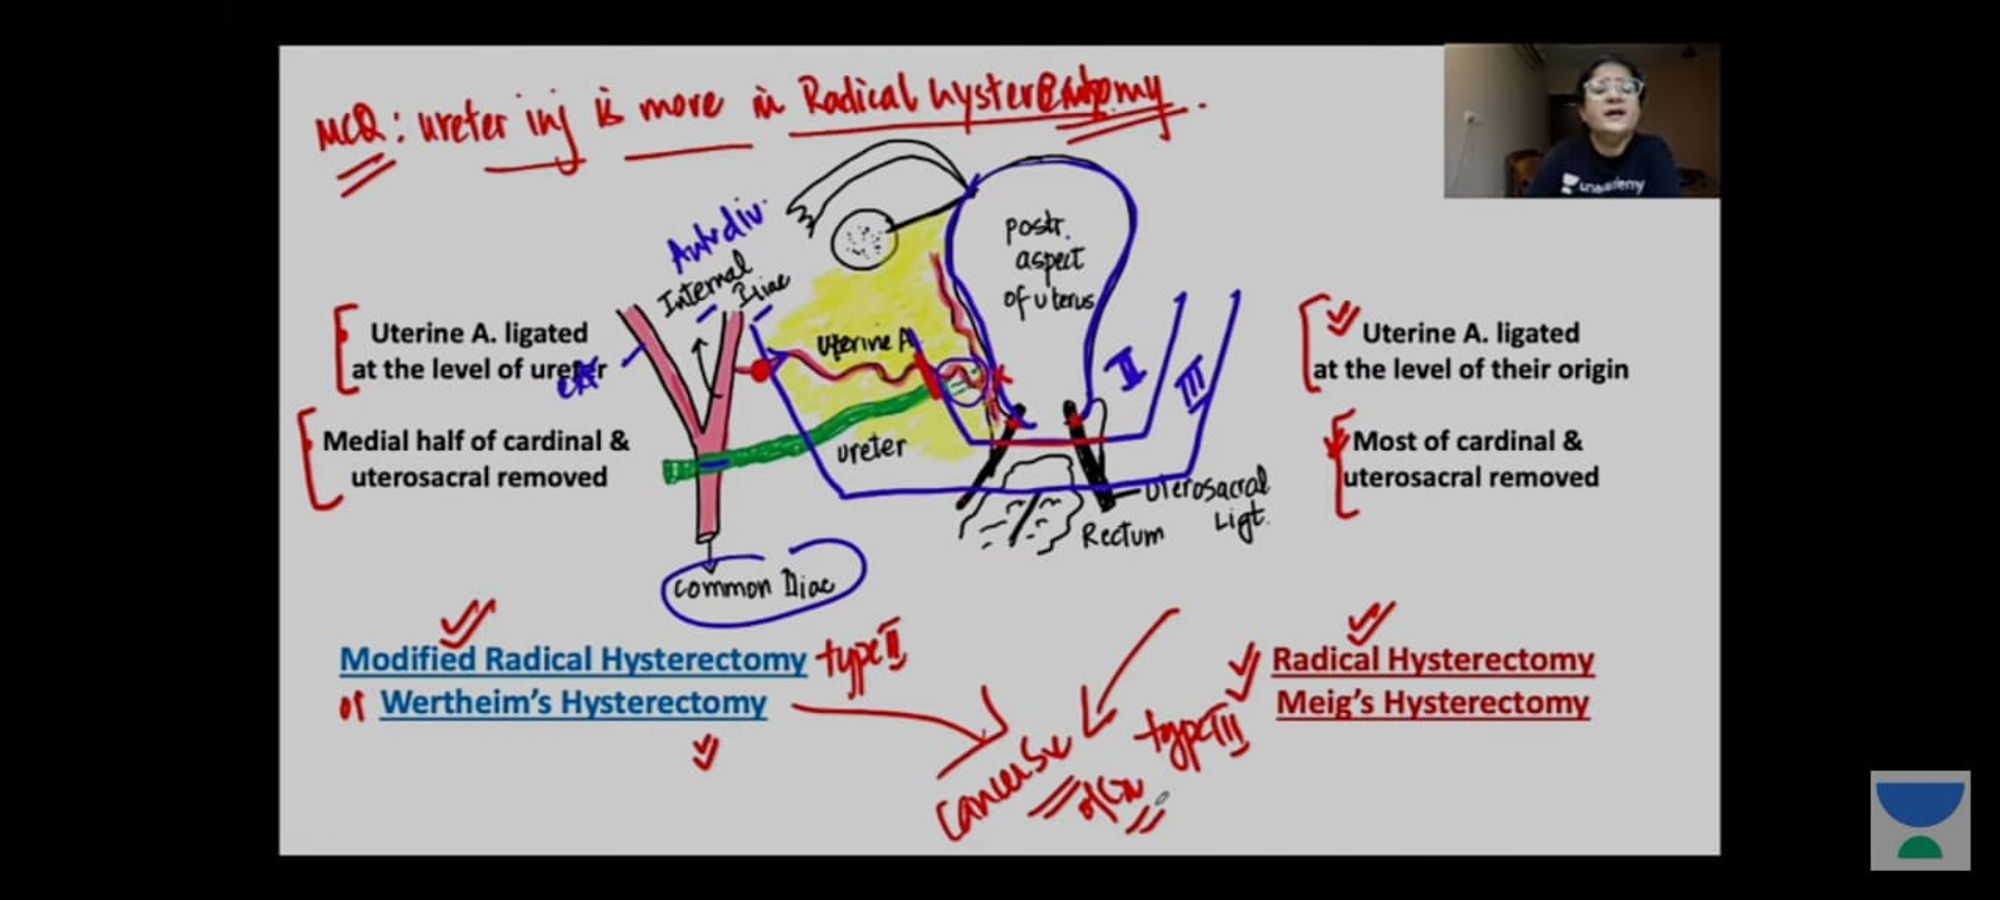 MCQ: ureter inj is more in Radical hysterectomy.
unacademy
Ant div.
Internal
Iliac
postr.
aspect
of uterus
Uterine A. ligated
at the level of ureter
ext
Uterine A
II
III
Uterine A. ligated
at the level of their origin
Medial half of cardinal &
uterosacral removed
ureter
Most of cardinal &
uterosacral removed
Uterosacral
Ligt.
Rectum
Common Iliac
Modified Radical Hysterectomy type II
or Wertheim's Hysterectomy
Radical Hysterectomy
Meig's Hysterectomy
type III
Cancers
of CX